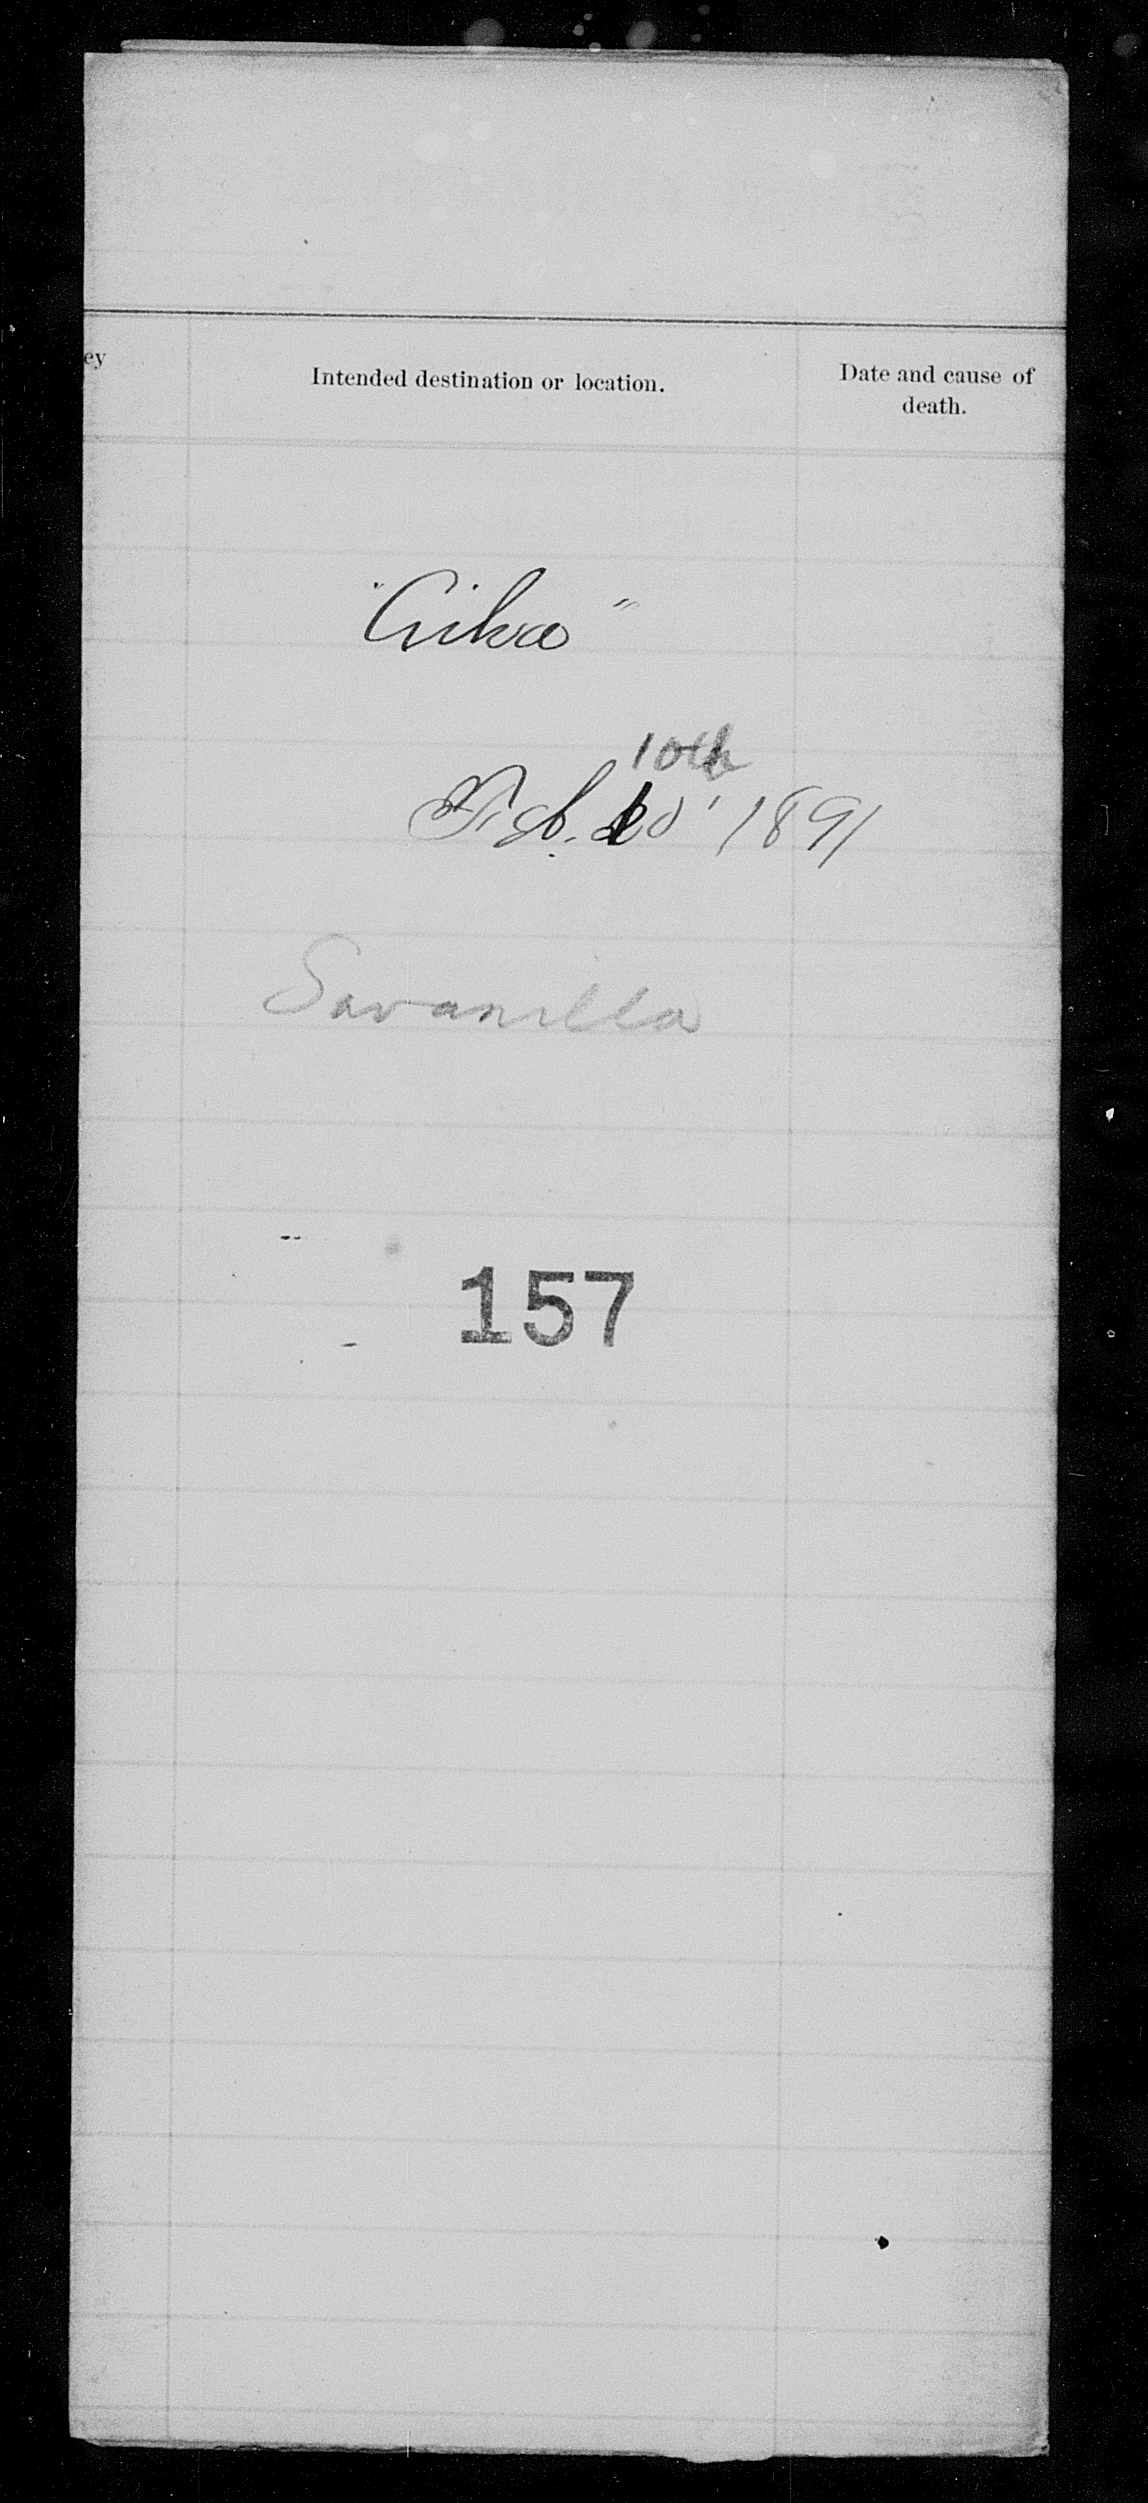 ey
Intended destination or location.
Date and cause of
death.
10th
Feb. 10' 1891
Savanilla
157